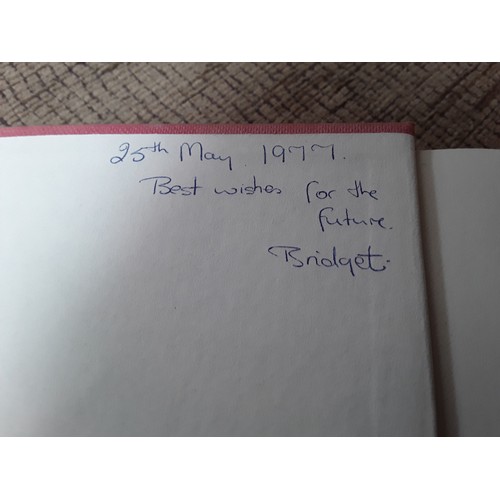 25th May 1977.
Best wishes for the
future.
Bridget.